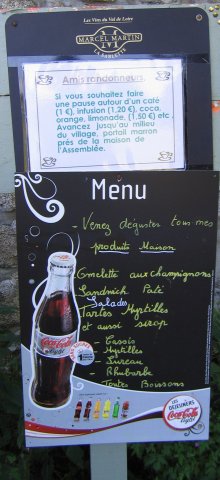 Les Vins du Val de Loire
MARCEL MARTIN
LA SABLETTE
Amis randonneurs,
Si vous souhaitez faire
une pause autour d'un café
(1 €), infusion (1,20 €), coca,
orange, limonade, (1,50 €) etc.
Avancez jusqu'au milieu
du village, portail marron
près de la maison de
l'Assemblée.
Menu
- Venez déguster tous mes
produits Maison
Omelette aux champignons
Sandwich Paté
Salades
Tartes Myrtilles
et aussi sirop
- Cassis
- Myrtilles
- Sureau
- Rhubarbe
- Toutes Boissons
Coca-Cola
light
LES
DEJEUNERS
Coca-Cola
light